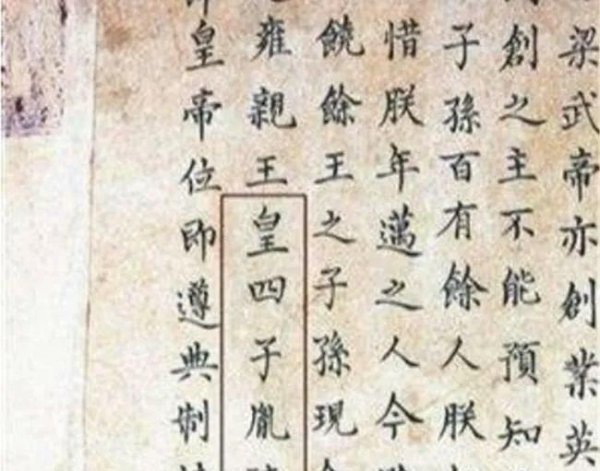 梁武帝亦創業英
創之主不能預知
子孫百有餘人朕
惜朕年邁之人今
饒餘王之子孫現
雍親王皇四子胤
皇帝位即遵典制